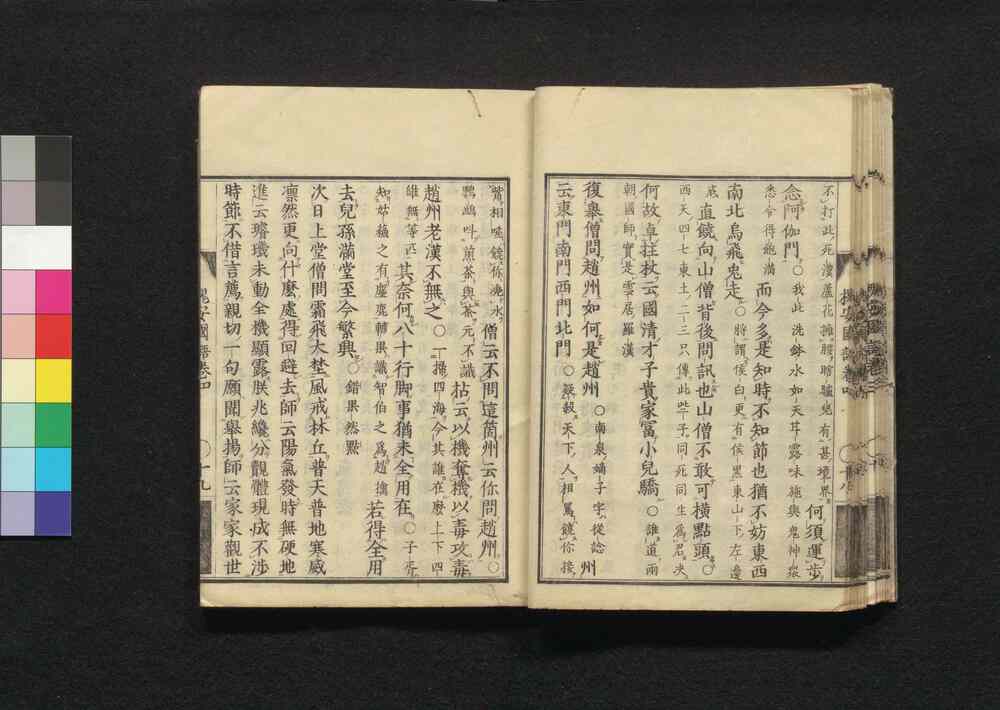 不打此死漢蘆花擁腰瞎驢兒有甚境界 何須運步
念阿伽門 ○我此洗鉢水如天甘露味施與鬼神衆
悉令得飽滿 而今多是知時不知節也猶不妨東西
南北烏飛兔走 ○時謂侯白更有侯黑東山下左邊
底 直饒向山僧背後問訊也山僧不敢可橫點頭 ○
西天四七東土二三只傳此些子同死同生爲君決
何故卓拄杖云國清才子貴家富小兒驕 ○誰道兩
朝國師實是雲居羅漢
復擧僧問趙州如何是趙州 ○南泉嫡子字從諗 州
云東門南門西門北門 ○ 天下人相罵饒你接
觜相唾饒你潑水 僧云不問這箇州云你問趙州 ○
鸚鵡叫煎茶與茶元不識 拈云以機奪機以毒攻毒
趙州老漢不無之 ○一擡四海今其誰在麼上下四
維無等匹 其奈何八十行脚事猶未全用在 ○子齊
知姑蘇之有麋鹿輔果識智伯之爲趙擒 若得全用
去兒孫滿堂至今繁興 ○錯果然點
次日上堂僧問霜飛大埜風戒林丘普天普地寒威
凛然更向什麼處得回避去師云陽氣發時無硬地
進云璿璣未動全機顯露朕兆纔分觀體現成不涉
時節不借言薦親切一句願聞擧揚師云家家觀世
國語卷四
十九